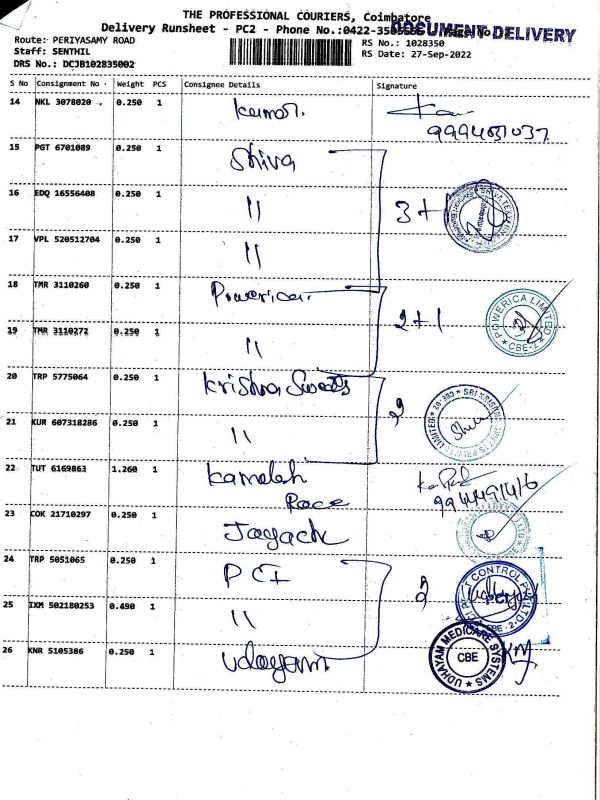 THE PROFESSIONAL COURIERS, Coimbatore
Delivery Runsheet - PC2 - Phone No.:0422-
DOCUMENT DELIVERY
Route: PERIYASAMY ROAD
RS No.: 1028350
Staff: SENTHIL
RS Date: 27-Sep-2022
DRS No.: DCJB102835002
S No Consignment No Weight PCS Consignee Details Signature
14 NKL 3078020 0.250 1 Kumar.
15 PGT 6701089 0.250 1 Shiva
16 EDQ 16556408 0.250 1 11 3+1
17 VPL 520512704 0.250 1 11
18 TMR 3110260 0.250 1 Powerica 2+1 POWERICA LIMITED * CBE-2 *
19 TMR 3110272 0.250 1 11
20 TRP 5775064 0.250 1 Krishna Sweets 2
21 KUR 607318286 0.250 1 11
22 TUT 6169863 1.260 1 Kamalesh
Race
23 COK 21710297 0.250 1
24 TRP 5051065 0.250 1 PCI 2
25 IXM 502180253 0.490 1 11
26 KNR 5105386 0.250 1 Udayam UDHAYAM MEDICARE SYSTEMS CBE